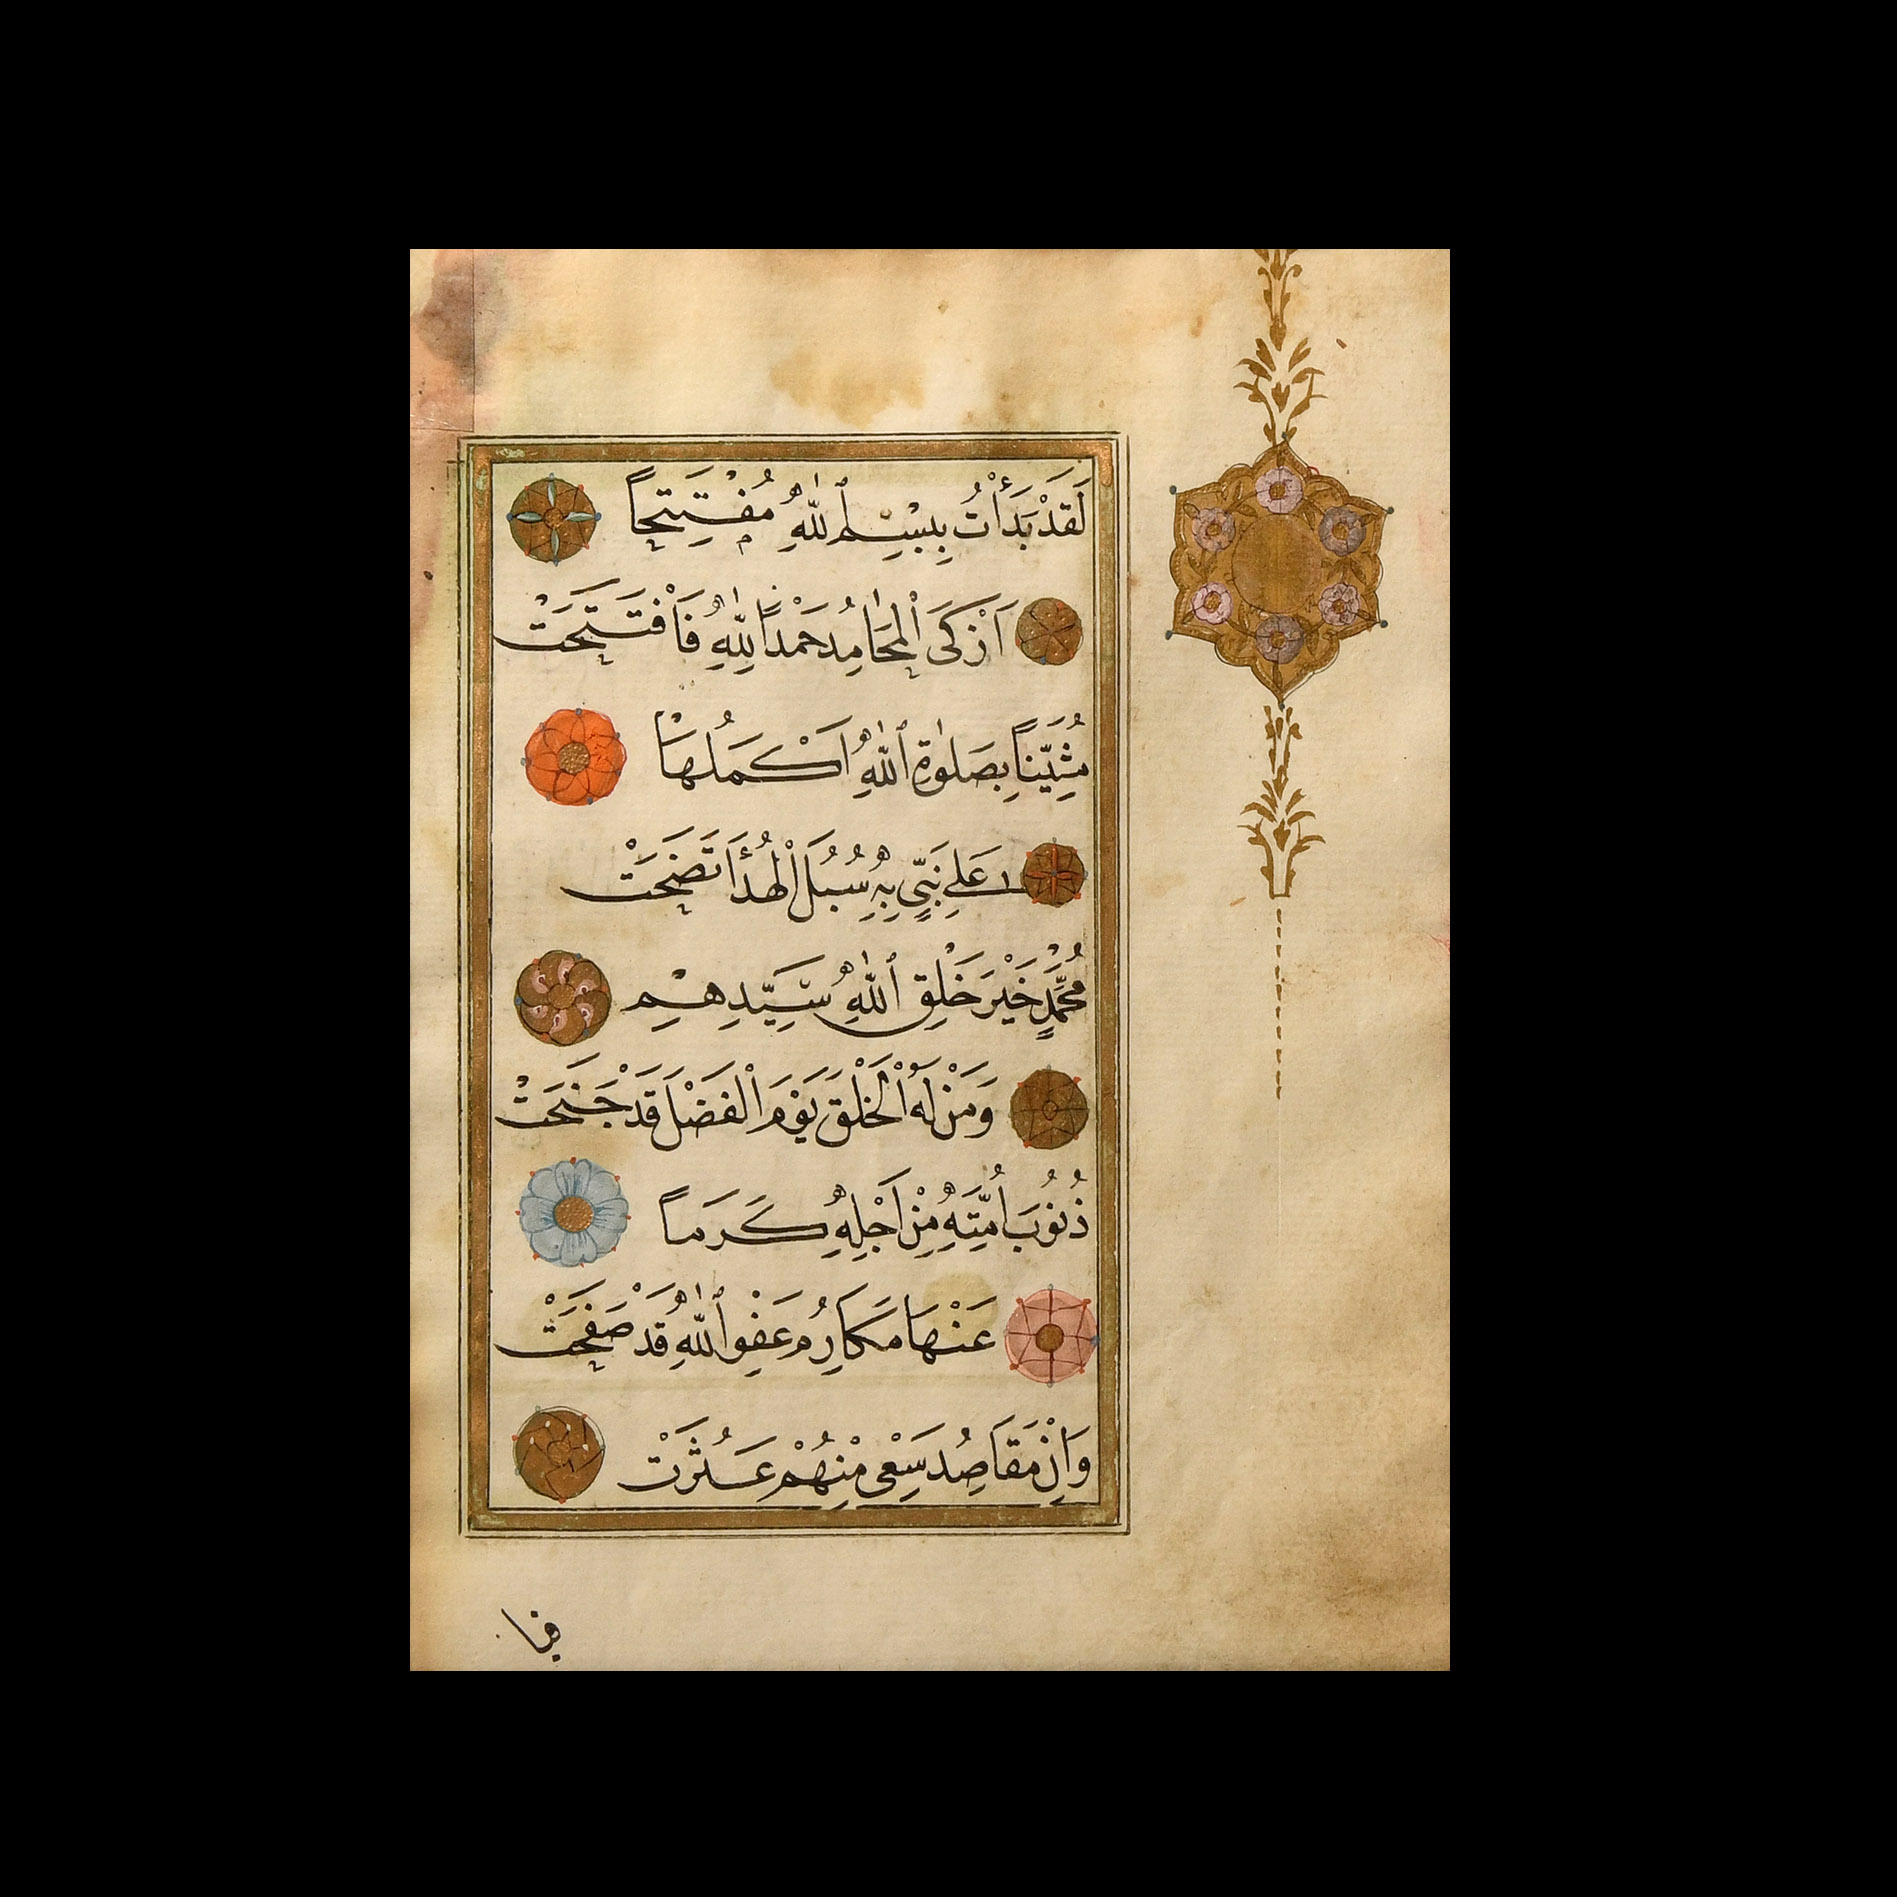 لَقَدْ بَدَأْتُ بِبِسْمِ ٱللّٰهِ مُفْتِتِحاً
اَزْكَى الْمَحَامِدِ حَمْداً لِلّٰهِ فَافْتَتَحَتْ
مُثِيّناً بِصَلٰوةِ ٱللّٰهِ اَكْمَلُهَا
عَلٰى نَبِيٍّ بِهِ سُبُلَ الْهُدٰٓى اتَّضَحَتْ
مُحَمَّدٍ خَيْرَ خَلْقِ ٱللّٰهِ سَيِّدِهِمِ
وَمَنْ لَهُ الْخَلْقَ يَوْمَ الْفَضْلَ قَدْ جَنَحَتْ
ذُنُوبَ اُمَّتِهِ مِنْ اَجْلِهِ كَرَماً
عَنْهَا مَكَارِمُ عَفْوِ ٱللّٰهِ قَدْ صَفَحَتْ
وَاِنْ مَقَاصِدُ سَعْىٍ مِنْهُمْ عَثَرَتْ